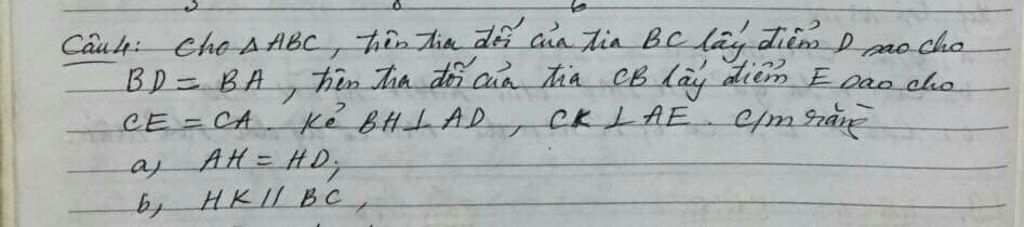 Câu 4: Cho △ABC, trên tia đối của tia BC lấy điểm D sao cho
BD = BA, trên tia đối của tia CB lấy điểm E sao cho
CE = CA. Kẻ BH ⊥ AD, CK ⊥ AE. C/m rằng
a, AH = HD;
b, HK // BC,